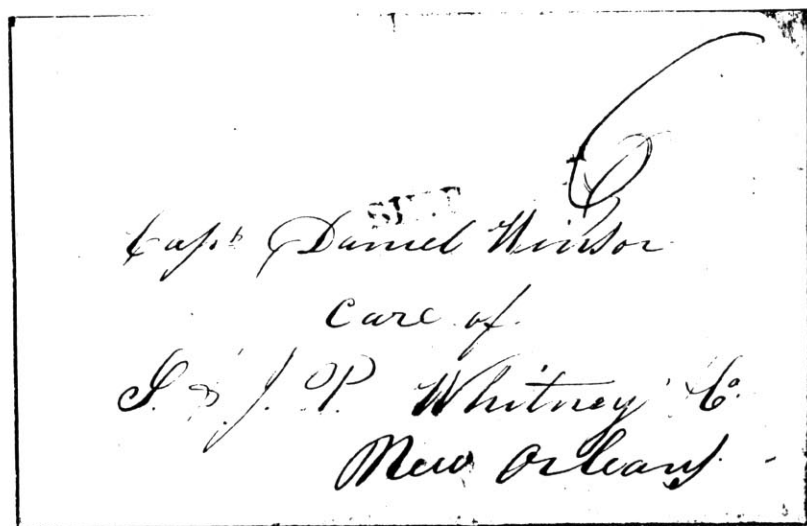 6
SHIP
Capt Daniel Winsor
Care of
S. & J. P. Whitney Co.
New Orleans.